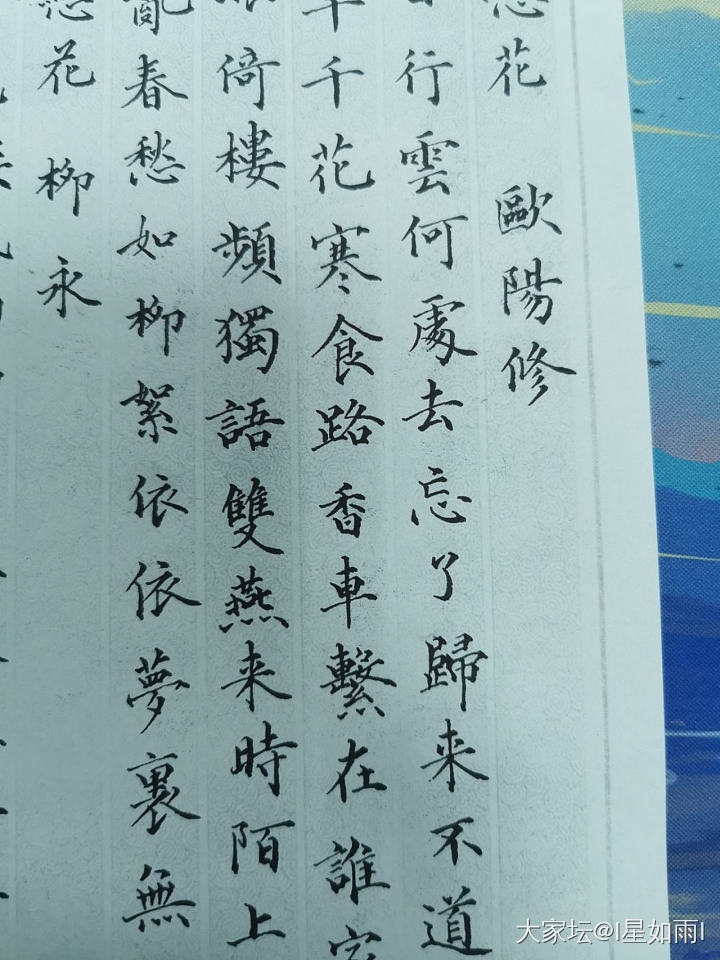 花 歐陽修
行雲何處去忘了歸来不道
千花寒食路香車繫在誰
倚樓頻獨語雙燕来時陌上
亂春愁如柳絮依依夢裏無
花 柳永
大家坛@I星如雨I